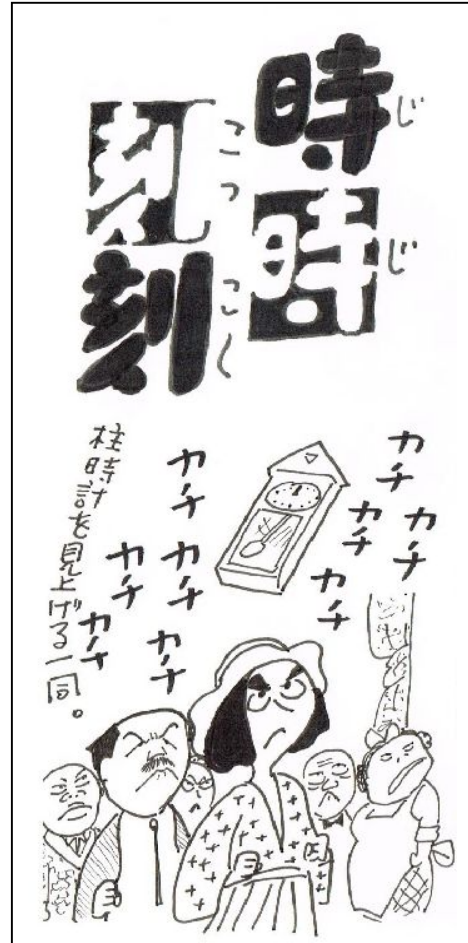 時時
じじ
刻刻
こっこく
カチ
カチ
カチ
カチ
カチ
カチ
カチ
カチ
カチ
柱時計を見上げる一同。